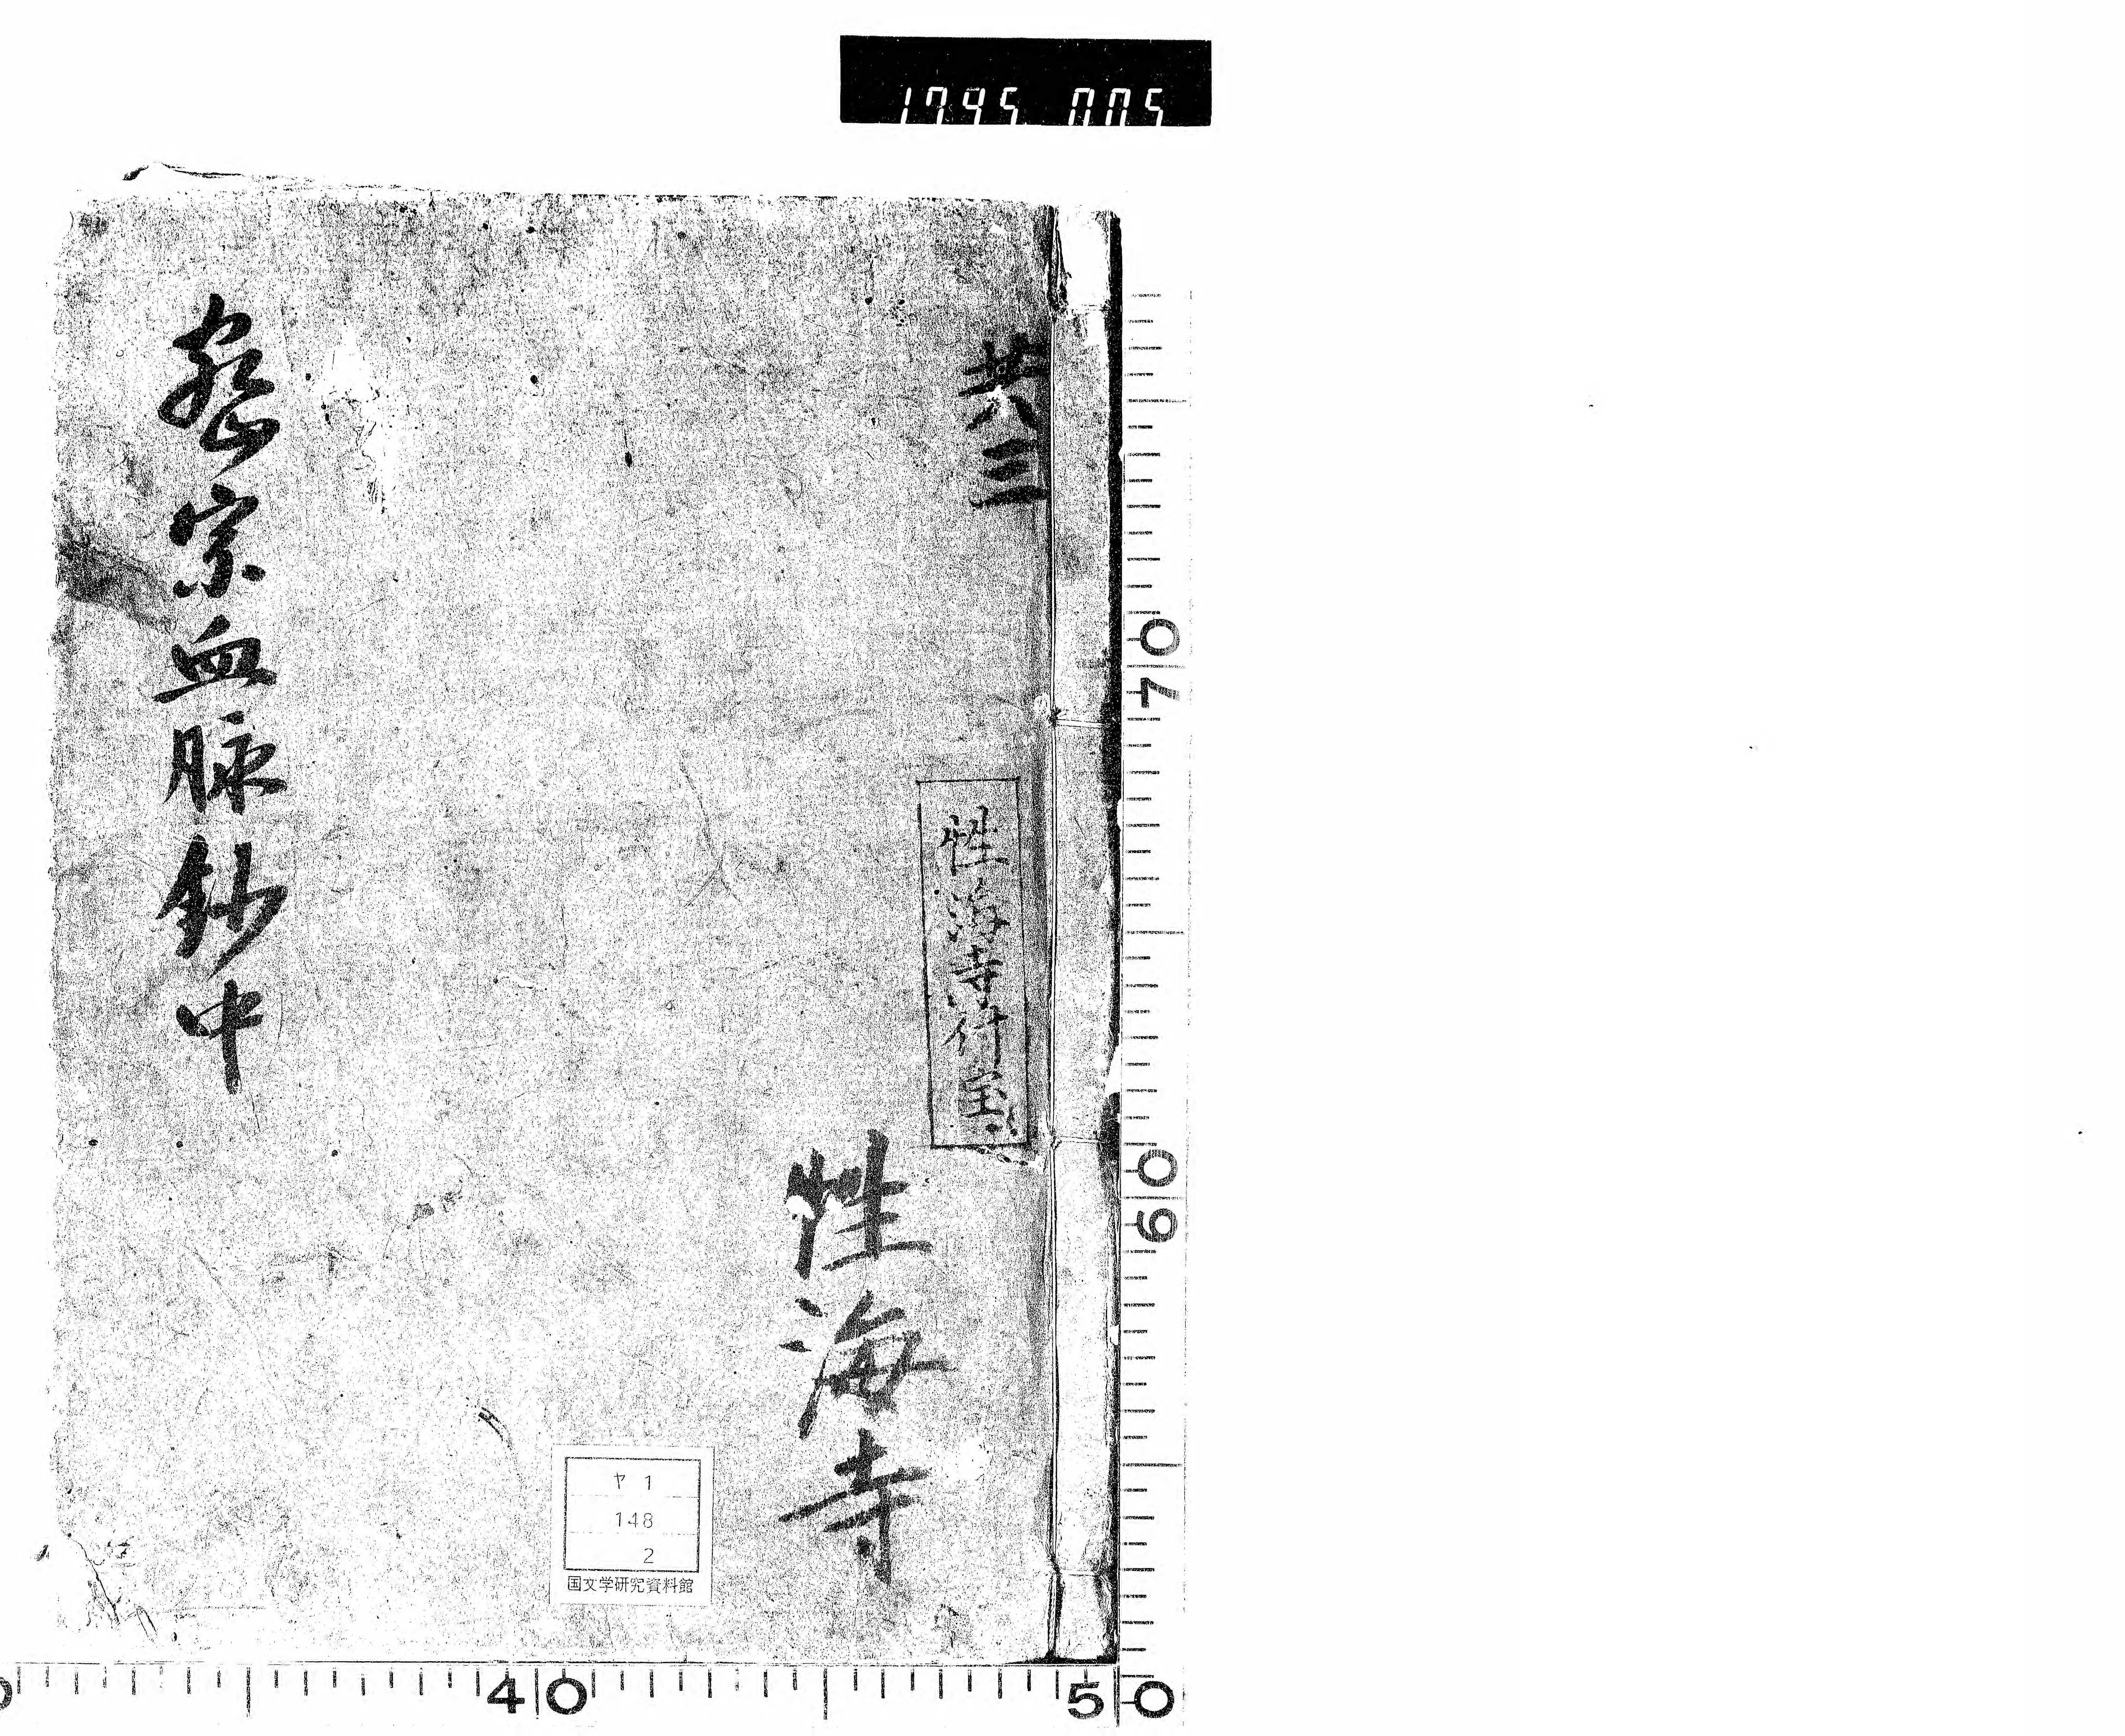 1795 005
共三
性海寺什宝
性海寺
密宗血脉鈔中
ヤ 1
148
2
国文学研究資料館
70
60
40
50